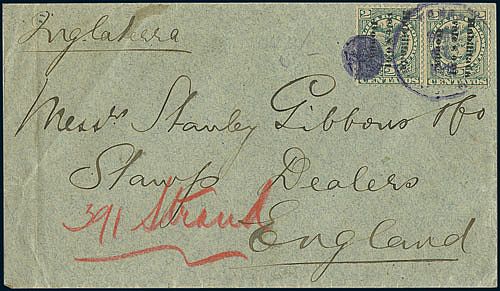 Inglaterra
Messrs Stanley Gibbons & Co
Stamp Dealers
391 Strand
England
CENTAVOS
CENTAVOS